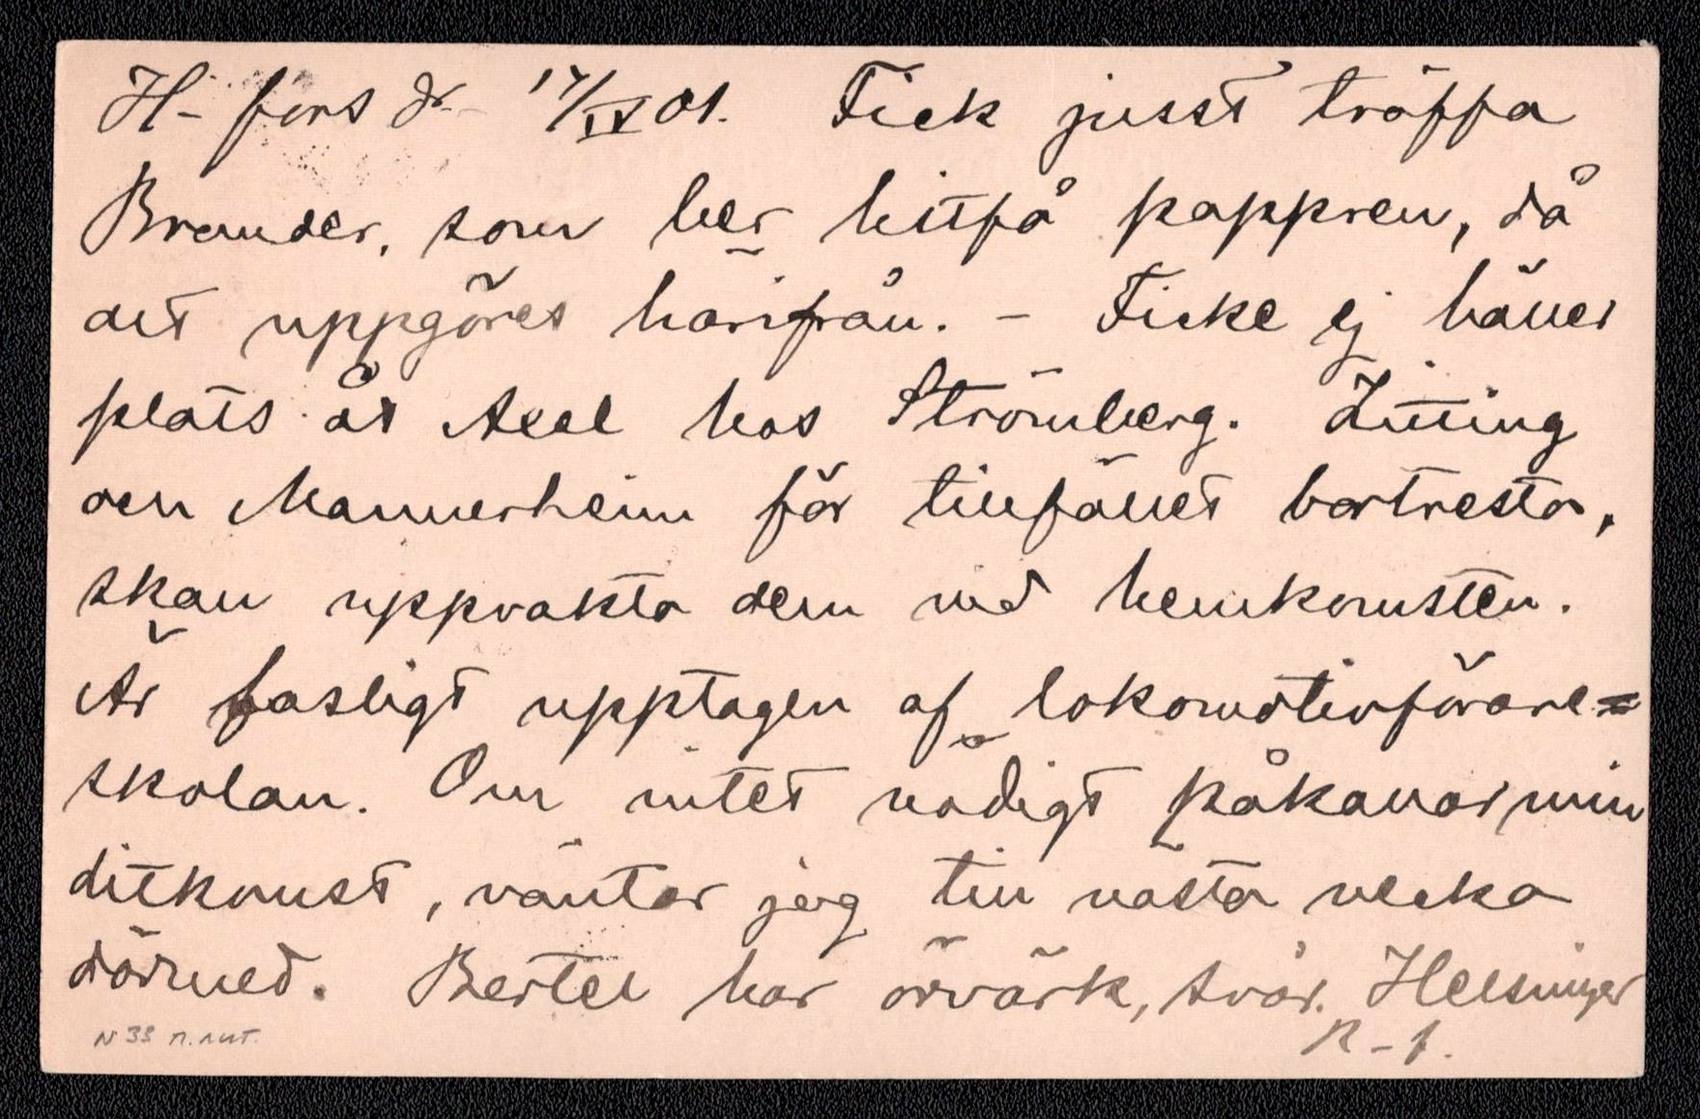 H-fors d. 17/IX 01. Fick jusst träffa
Brander, som ber hitfå pappren, då
det uppgöres härifrån. – Ficke ej häller
plats åt Axel hos Strömberg. Zitting
och Mannerheim för tillfället bortresta,
skall uppvakta dem vid hemkomsten.
Är fasligt upptagen af lokomotivförare=
skolan. Om intet nödigt påkallar min
ditkomst, väntar jag till nästa vecka
därmed. Bertel har örvärk, svår. Helsningar
R-f.
N 33 п. лит.